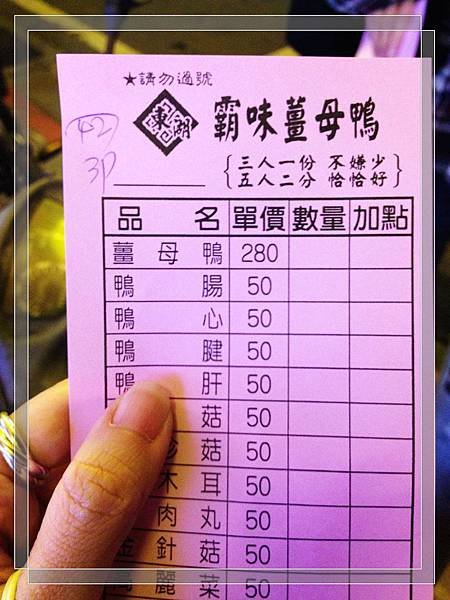 ★請勿過號
東湖
霸味薑母鴨
42
3P
三人一份 不嫌少
五人二分 恰恰好
品名 單價 數量 加點
薑母鴨 280
鴨腸 50
鴨心 50
鴨腱 50
鴨肝 50
菇 50
菇 50
木耳 50
肉丸 50
金針菇 50
高麗菜 50